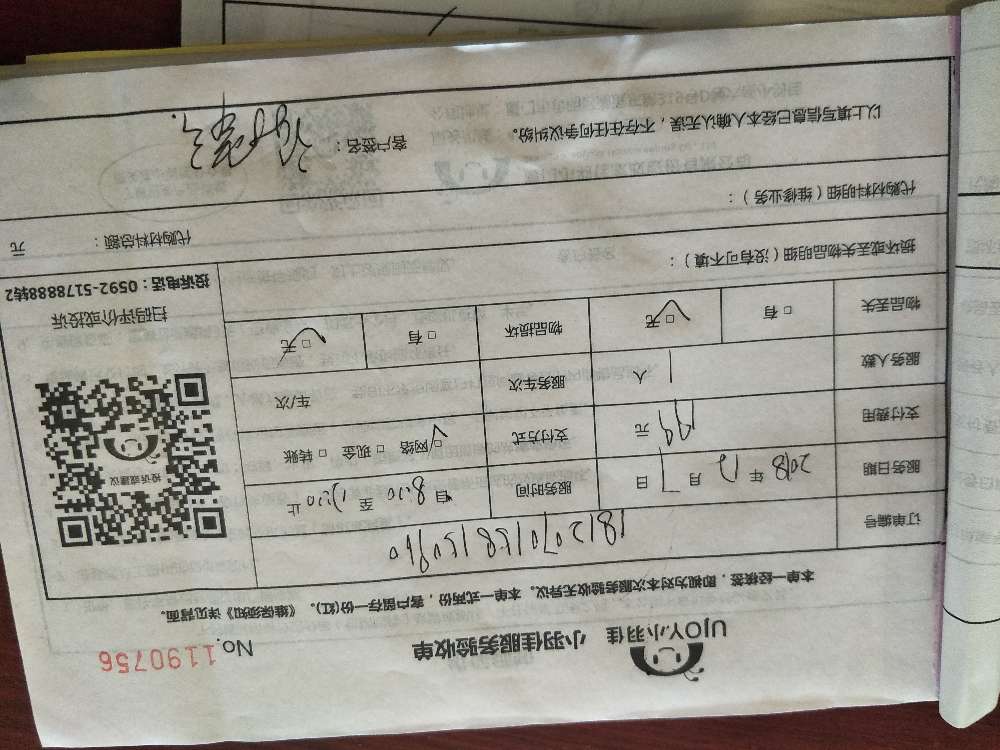 UJOY小羽佳 小羽佳服务验收单 No.1190756
本单一经核签，即视为对本次服务验收无异议。本单一式两份，客户留存一份(红)。《维保须知》详见背面。
订单编号
服务日期 2018 年 12 月 7 日 服务时间 自 8:00 至 12:00 止
支付费用 199 元 支付方式 □网络 □现金 □转账
服务人数 1 人 服务车次 车/次
物品丢失 □有 □无 物品损坏 □有 □无
投诉或建议
扫码评价或投诉
投诉电话：0592-5178888转2
损坏或丢失物品明细（没有可不填）：
代购材料明细（维修业务）：
代购材料总额： 元
以上填写信息已经本人确认无误，不存在任何争议纠纷。 客户签名：